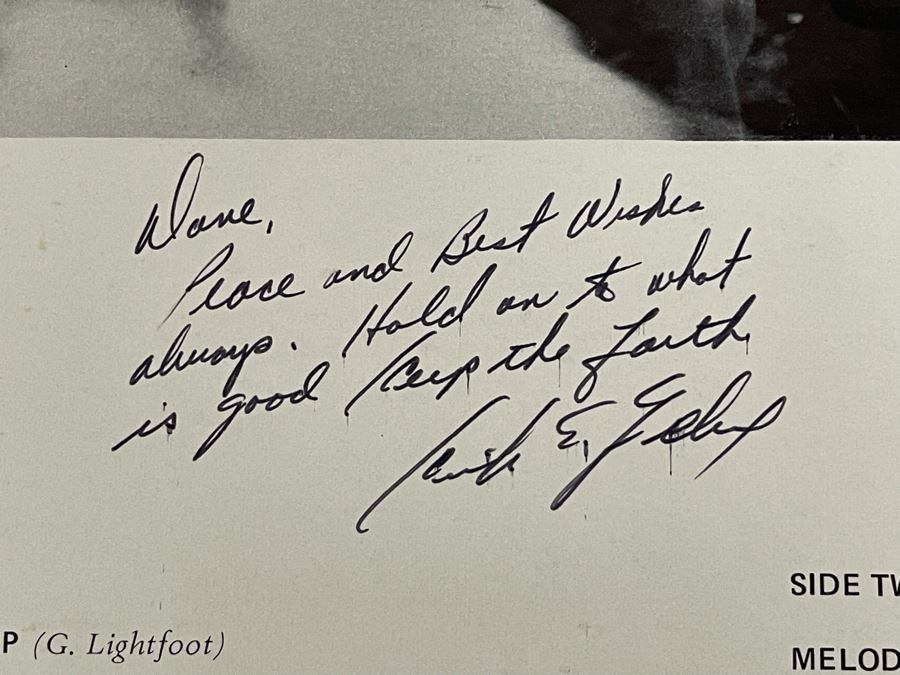 Dave,
Peace and Best Wishes
always. Hold on to what
is good Keep the Faith
E.
SIDE TW
P (G. Lightfoot)
MELOD